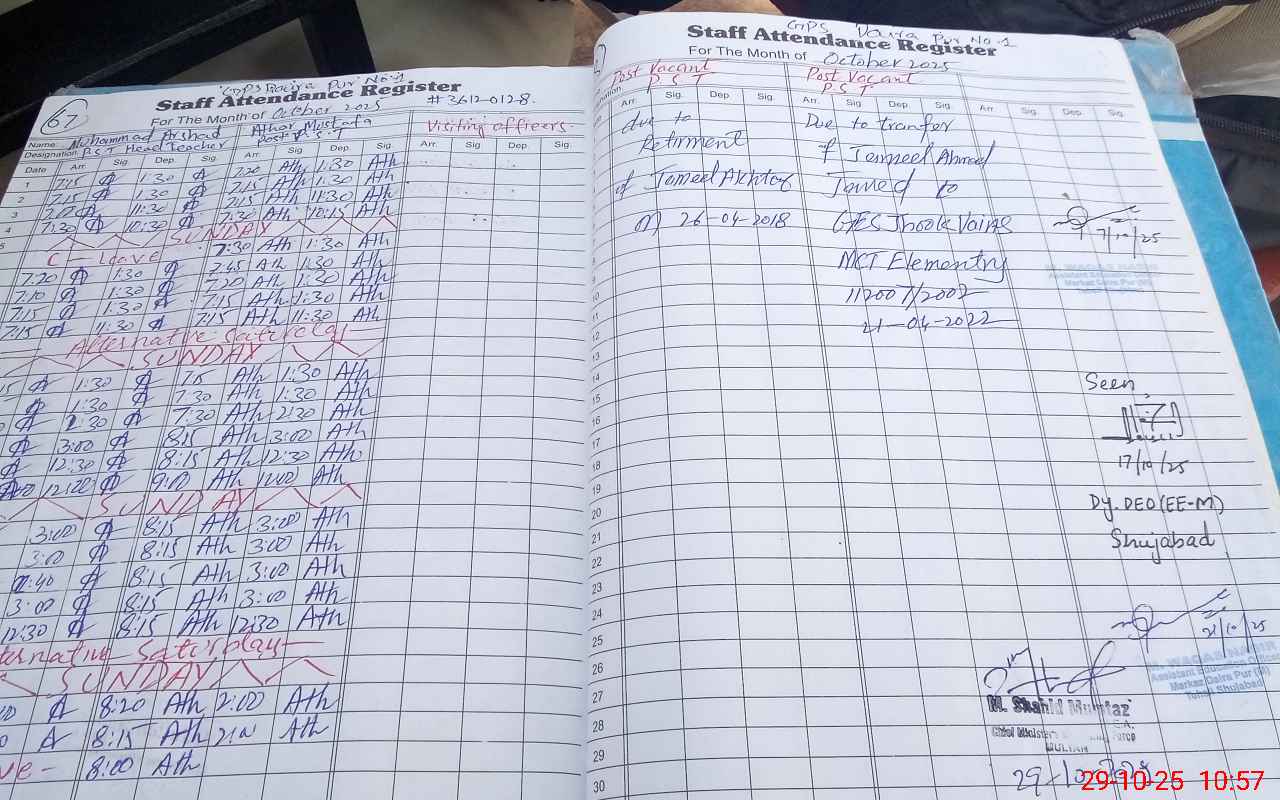 67
GPS Daira Pur No.1
Staff Attendance Register
For The Month of October 2025
#3612-0128.
Name: Muhammad Arshad Athar Mustafa Visiting officers
Designation P.S.T Head Teacher post P.S.T
Date Arr. Sig. Dep. Sig. Arr. Sig. Dep. Sig. Arr. Sig. Dep. Sig.
1 7:15 1:30 7:20 Ath 1:30 Ath
2 7:15 1:30 7:15 Ath 1:30 Ath
3 11:30 7:15 Ath 11:30 Ath
4 7:30 10:30 7:30 Ath 10:15 Ath
5 SUNDAY
C - Leave 7:30 Ath 1:30 Ath
7:20 1:30 7:45 Ath 1:30 Ath
7:10 1:30 7:20 Ath 1:30 Ath
7:15 1:30 7:15 Ath 1:30 Ath
7:15 11:30 7:15 Ath 11:30 Ath
Alternative
SUNDAY
1:30 7:15 Ath 1:30 Ath
1:30 7:30 Ath 1:30 Ath
7:30 Ath 2:30 Ath
3:00 8:15 Ath 3:00 Ath
12:30 8:15 Ath 12:30 Ath
12:00 9:00 Ath Ath
SUNDAY
3:00 8:15 Ath 3:00 Ath
3:00 8:15 Ath 3:00 Ath
8:15 Ath 3:00 Ath
3:00 8:15 Ath 3:00 Ath
12:30 8:15 Ath 12:30 Ath
ternative Saturday
SUNDAY
8:20 Ath 2:00 Ath
8:15 Ath Ath
ve- 8:00 Ath
GPS Daira Pur No.1
Staff Attendance Register
For The Month of October 2025
Post Vacant Post Vacant
P.S.T P.S.T
Arr. Sig. Dep. Sig. Arr. Sig. Dep. Sig. Arr. Sig. Dep. Sig.
due to Due to tranfer
Retirment of Jameel Ahmad
of Jameel Akhtar
26-04-2018
MCT Elementry
112007/2002
21-04-2022
7/10/25
Assistant Education
Markaz Daira Pur (M)
8
9
10
11
12
13
14
15
16
17
18
19
20
21
22
23
24
25
26
27
28
29
30
Seen
17/10/25
Dy.DEO(EE-M)
Shujabad
21/10/25
M. WAQAS NASIR
Assistant Education Officer
Markaz Daira Pur (M)
Tehsil Shujabad
M. Shahid Mumtaz
MULTAN
29-10-2025
29-10-25 10:57